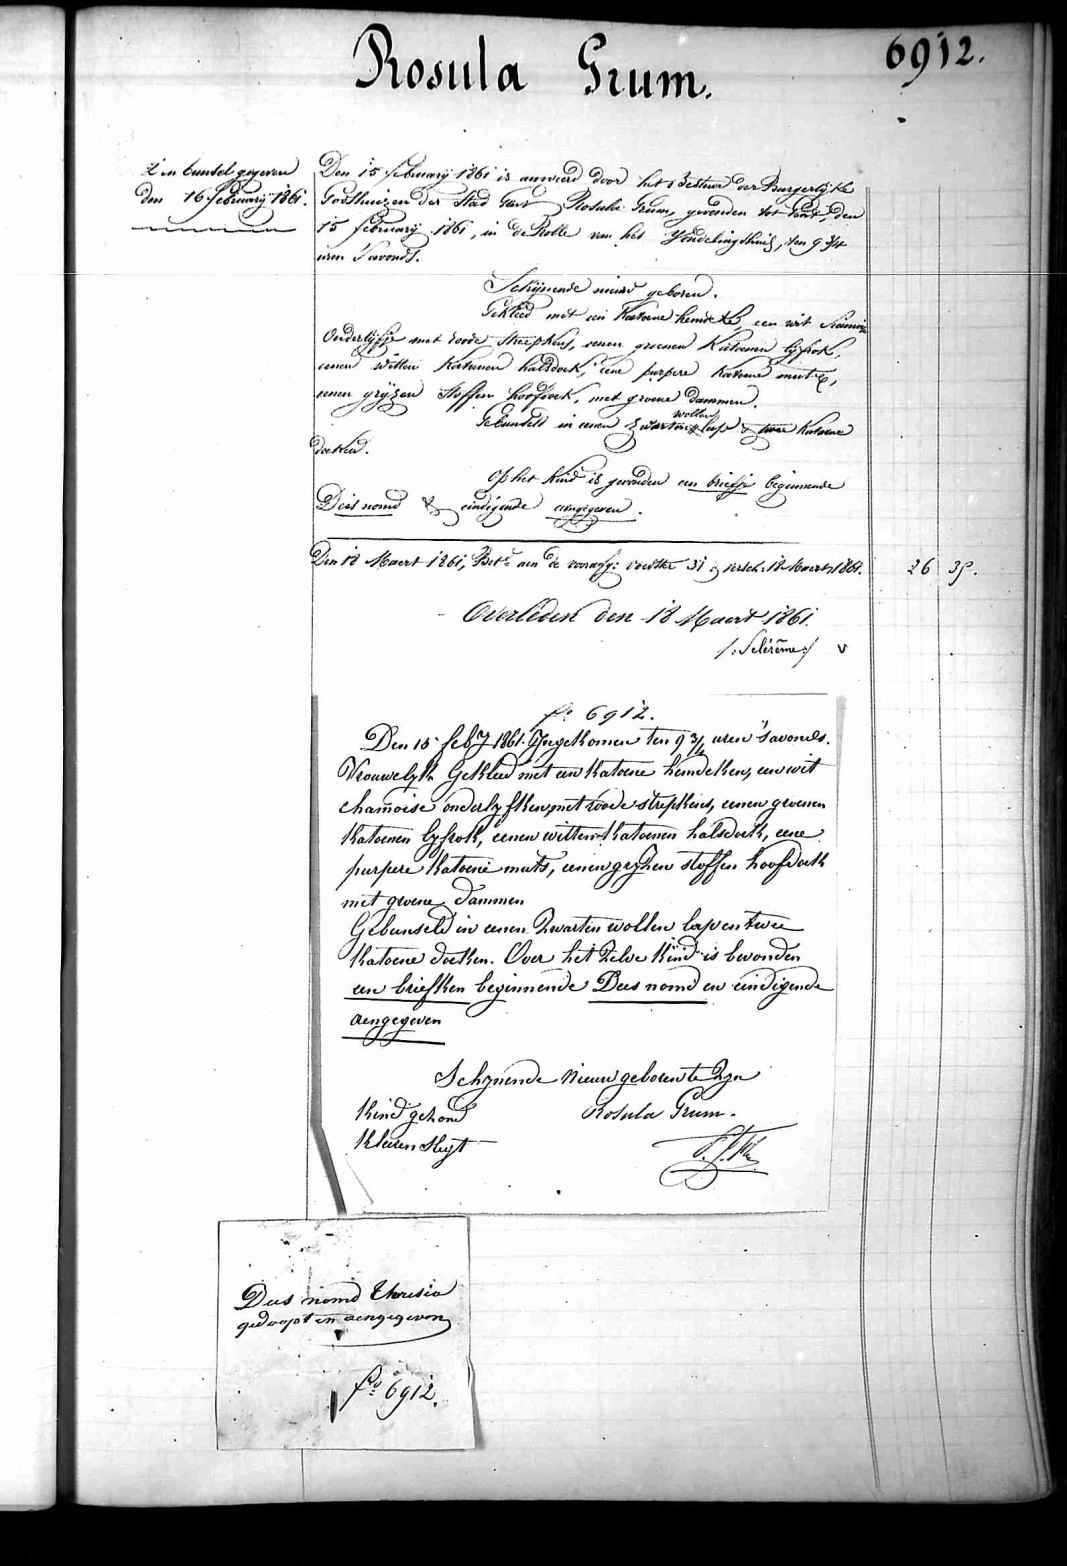 Rosula Grum.
6912.
in bunsel gegeven
den 16 february 1861.
Den 15 february 1861 is aenveerd door het Bestuur der Burgerlyke
Godshuizen der Stad Gent Rosula Grum, gevonden tot Gent, den
15 february 1861, in de Rolle van het Vondelingshuis, ten 9 3/4
uren s'avonds.
Schynende nieuw geboren.
Gekleed met een katoene hemdeke, een wit
Onderlyfje met roode streepkens, eenen groenen katoenen lyfrok,
eenen witten katoenen halsdoek, eene purpere katoene muts,
eenen gryzen stoffen hoofdoek, met groene dammen.
Gebunseld in eenen zwarten wollen lap & twee katoene
doeken.
Op het kind is gevonden een briefje beginnende
Deis nomd & eindigende aengegeven.
Den 18 Maert 1861, Bet. aen de voorsz: voedster 31 18 Maert 1861. 26 35.
Overleden den 18 Maert 1861.
/: Sclérême :/ v
fo. 6912.
Den 15 feby 1861. Ingekomen ten 9 3/4 uren 's avonds.
Vrouwelyk Gekleed met een katoene hemdeken, een wit
chamoise onderlyfken met roode strepkens, eenen groenen
katoenen lyfrok, eenen witten katoenen halsdoek, eene
purpere katoene muts, eenen gryzen stoffen hoofdoek
met groene dammen
Gebunseld in eenen zwarten wollen lap en twee
katoene doeken. Over het zelve kind is bevonden
een briefken beginnende Deis nomd en eindigende
aengegeven
Schynende nieuw geboren te zyn
Kind gezond Rosula Grum.
Kleeren slegt
Deis nomd Theresia
gedoopt en aengegeven
fo. 6912.